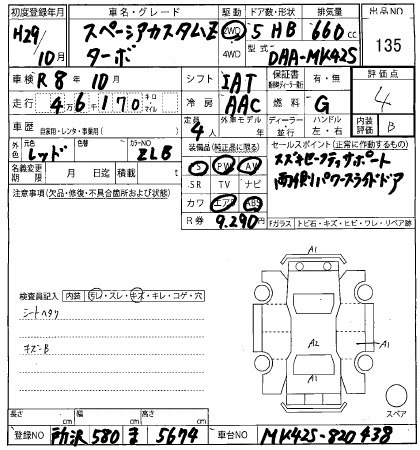 初度登録年月 車名・グレード 駆動 ドア数・形状 排気量 出品NO
H29/10月 スペーシアカスタムZ ターボ 2WD 4WD 5HB 660cc 135
型式 DAA-MK42S
車検 R8年10月 シフト IAT 保証書 有・無 評価点 4
走行 46170 キロ・マイル 冷房 AAC 燃料 G 内装 B
車歴 自家用・レンタ・事業用( ) 定員 4人 外車モデル年 年 ディーラー 並行 ハンドル 左・右
外色 元色 レッド 色替 カラーNO ZLB 装備品(純正品に限る) セールスポイント(正常に作動するもの)
名義変更期限 月 日迄 積載 t S PW AW スズキセーフティサポート
注意事項(欠品・修復・不具合箇所および状態) SR TV ナビ 両側パワースライドドア
カワ エアB ABS
R券 9,290円 Fガラス トビ石・キズ・ヒビ・ワレ・リペア跡
検査員記入 内装 汚レ・スレ・キズ・キレ・コゲ・穴
シートヘタリ
キズ・B
A1
A2
A1
A1
スペア
長さ cm 幅 cm 高さ cm
登録NO 所沢 580 ま 5674 車台NO MK42S-820438